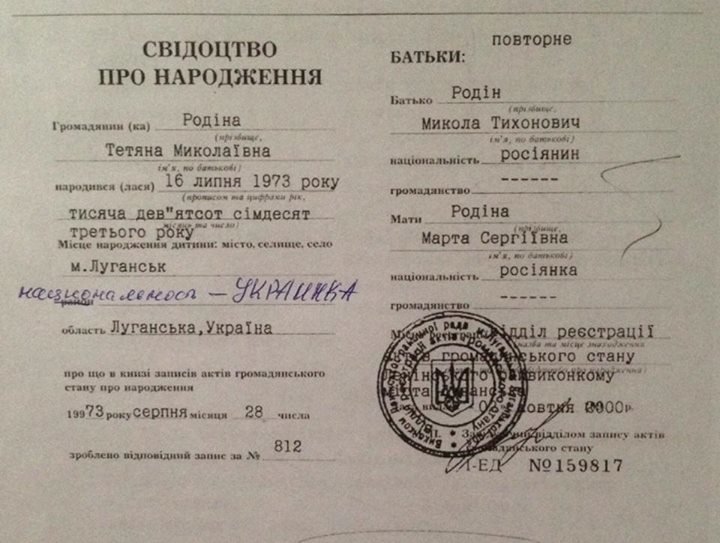 СВІДОЦТВО
ПРО НАРОДЖЕННЯ
Громадянин (ка) Родіна
(прізвище,
Тетяна Миколаївна
ім'я, по батькові)
народився (лася) 16 липня 1973 року
(прописом та цифрами рік,
тисяча дев"ятсот сімдесят
місяць та число)
третього року
Місце народження дитини: місто, селище, село
м.Луганськ
национальность – УКРАИНКА
район
область Луганська,Україна
про що в книзі записів актів громадянського
стану про народження
19973 року серпня місяця 28 числа
зроблено відповідний запис за № 812
повторне
БАТЬКИ:
Батько Родін
(прізвище,
Микола Тихонович
ім'я, по батькові)
національність росіянин
громадянство ------
Мати Родіна
(прізвище,
Марта Сергіївна
ім'я, по батькові)
національність росіянка
громадянство ------
відділ реєстрації
назва та місце знаходження
громадянського стану
виконкому
жовтня 2000р.
відділом запису актів
громадянського стану
І-ЕД №159817